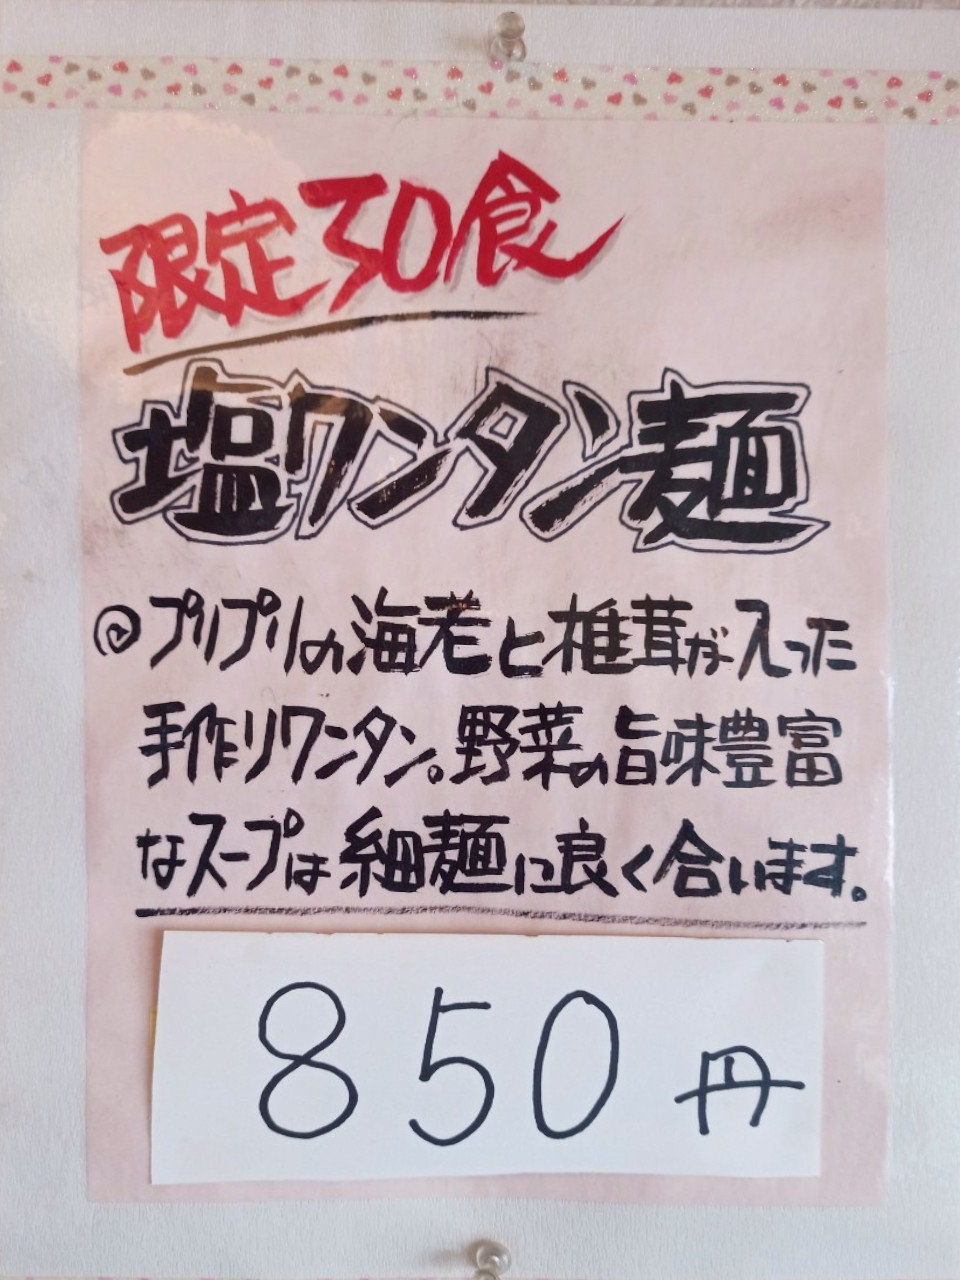 限定30食
塩ワンタン麺
プリプリの海老と椎茸が入った
手作りワンタン。野菜の旨味豊富
なスープは細麺に良く合います。
850円